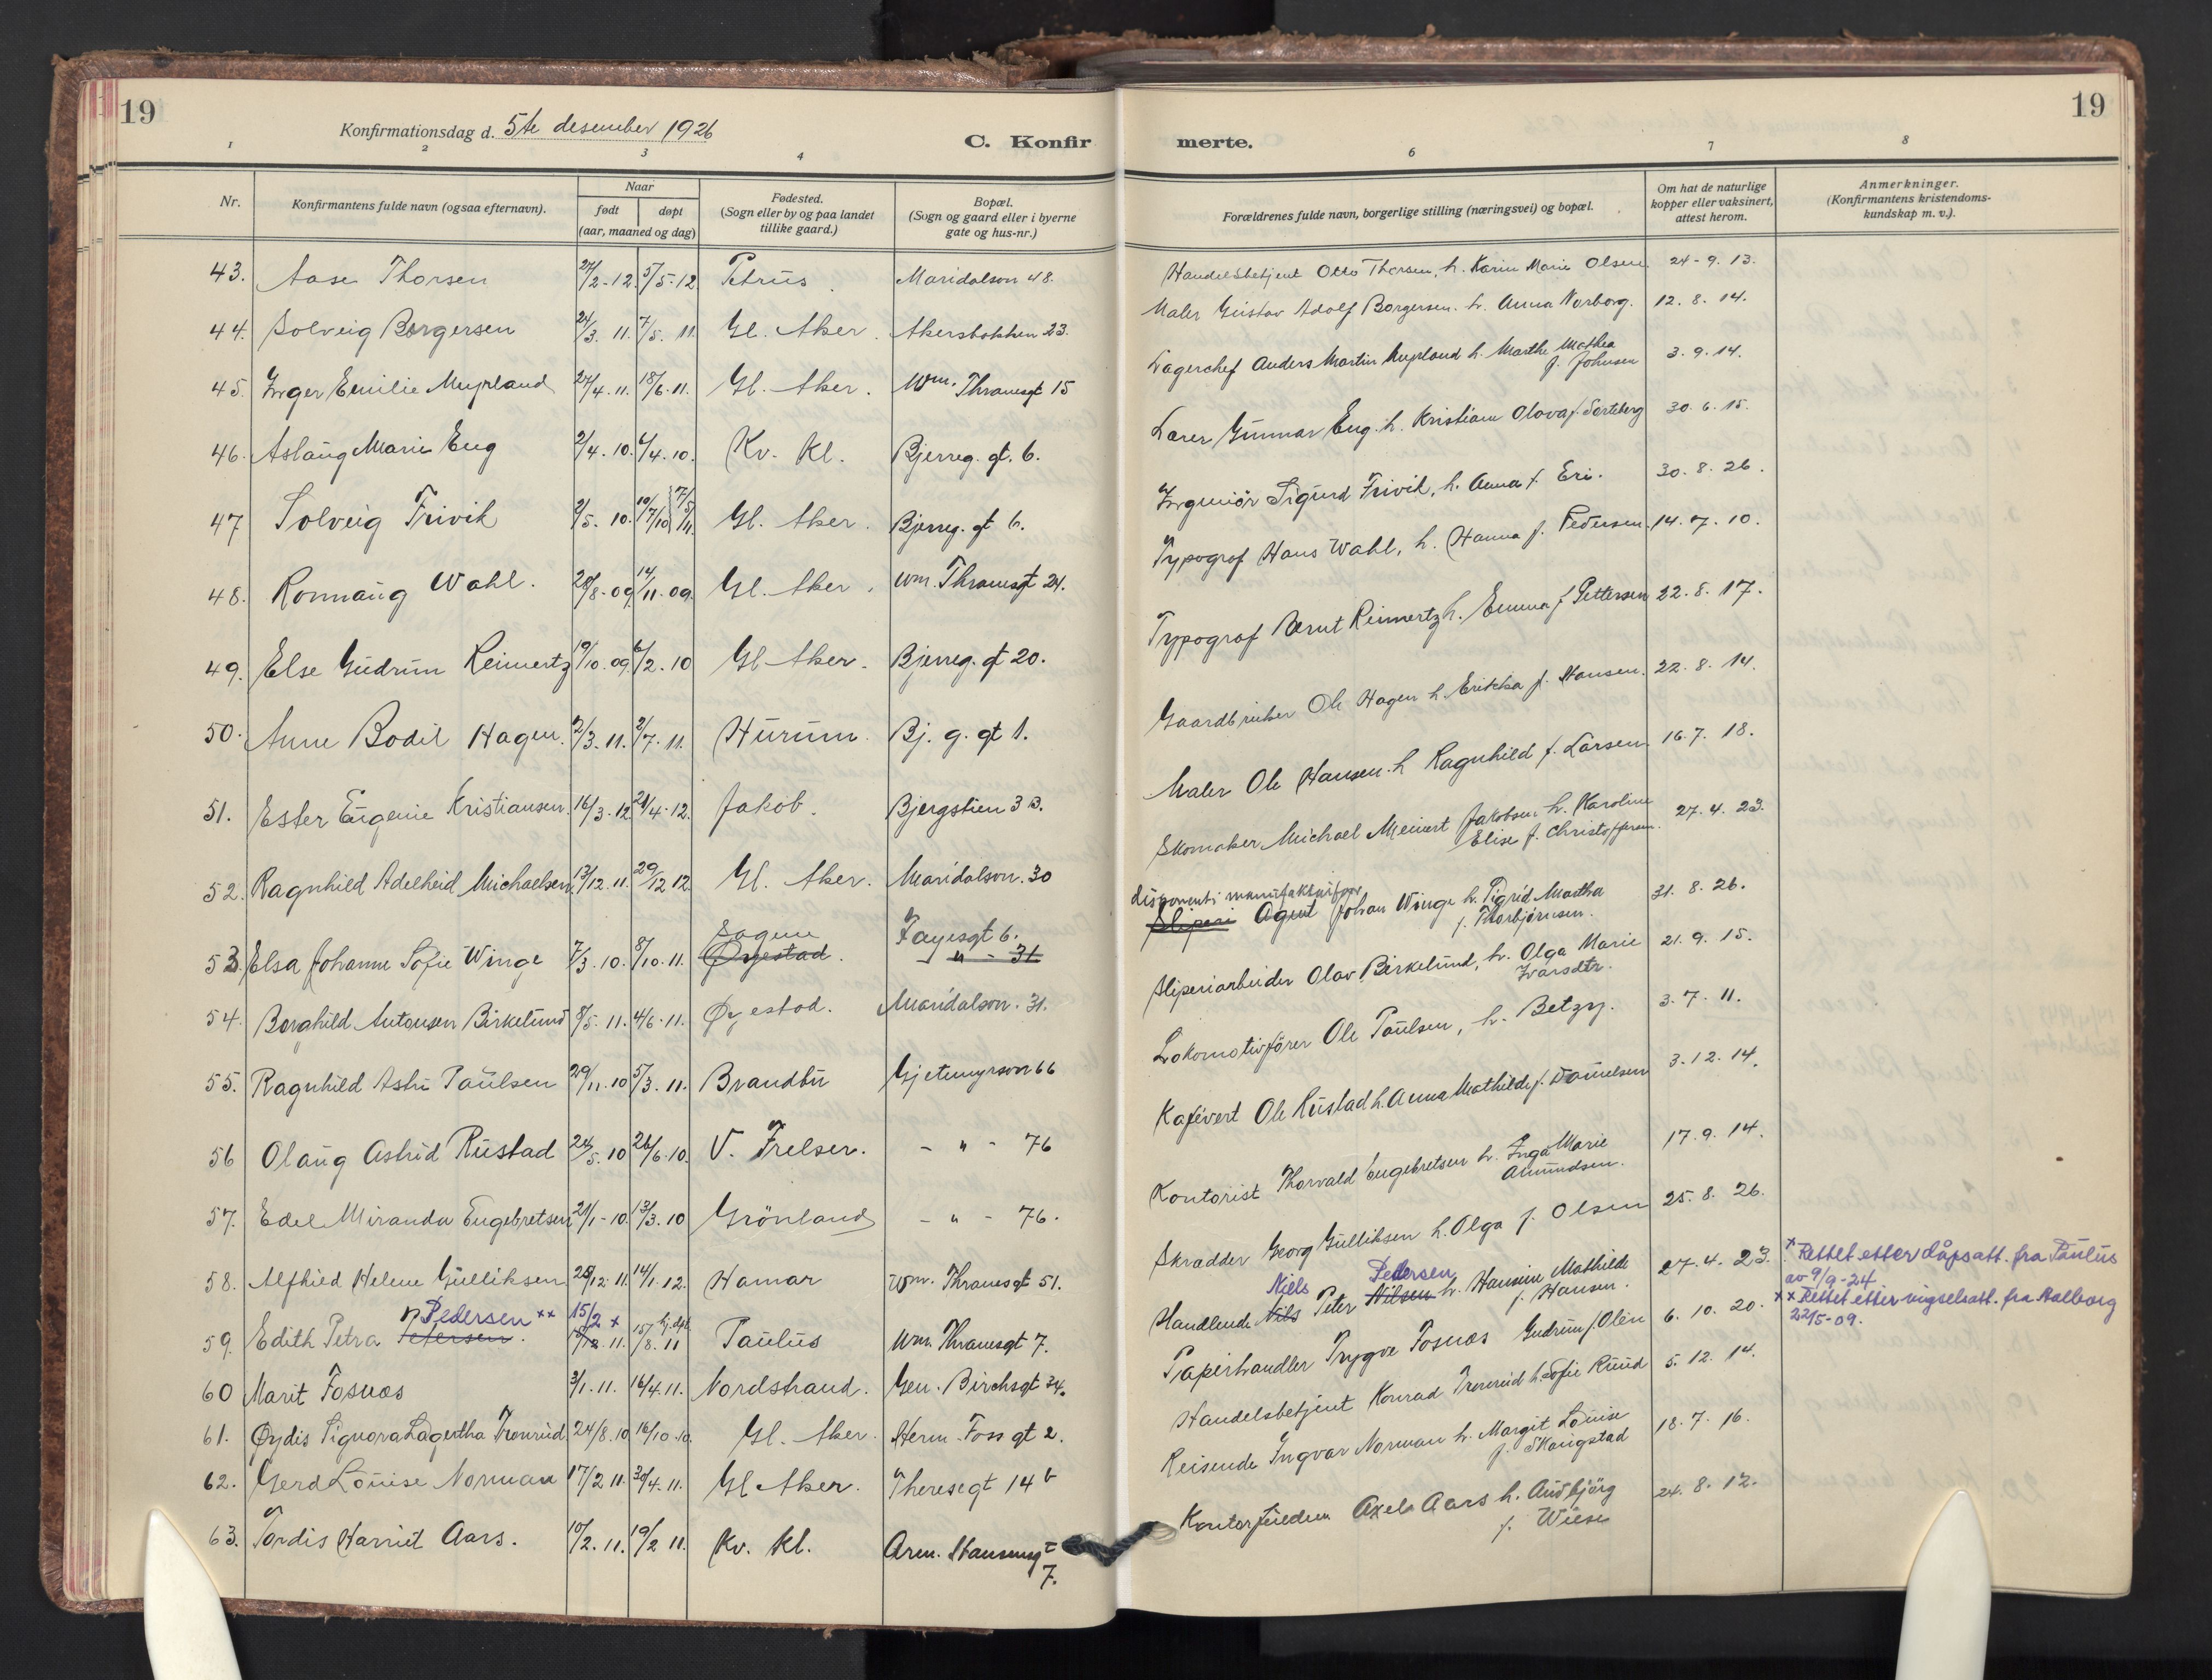 19
19
Konfirmationsdag d. 5te desember 1926
C. Konfirmerte.
1 2 3 4 6 7 8
Nr.
Konfirmantens fulde navn (ogsaa efternavn).
Naar
født
døpt
(aar, maaned og dag)
Fødested.
(Sogn eller by og paa landet
tillike gaard.)
Bopæl.
(Sogn og gaard eller i byerne
gate og hus-nr.)
Forældrenes fulde navn, borgerlige stilling (næringsvei) og bopæl.
Om hat de naturlige
kopper eller vaksinert,
attest herom.
Anmerkninger.
(Konfirmantens kristendoms-
kundskap m. v.).
43. Aase Thorsen 27/2-12. 5/5-12 Petrus. Maridalsvn 48. Handelsbetjent Otto Thorsen, h. Karin Marie Olsen 24-9. 13.
44. Solveig Borgersen 24/3. 11. 7/5. 11. Gl. Aker. Akersbakken 23. Maler Gustav Adolf Borgersen. h. Anna Norborg. 12. 8. 14.
45. Inger Emilie Myrland 27/4. 11. 18/6. 11. Gl. Aker. Wm. Thranesgt 15 Lagerchef Anders Martin Myrland h. Marthe Mathea
f. Johnsen 3. 9. 14.
46. Aslaug Marie Eng 2/4. 10. /4. 10. Kv. Kl. Bjerreg. gt. 6. Lærer Gunnar Eng. h. Kristiane Olava f. Sorteberg 30. 6. 15.
47 Solveig Frivik 2/5. 10. 10/7 10 7/5 11. Gl. Aker. Bjerreg. gt 6. Ingeniør Sigurd Frivik, h. Anna f. Eri. 30. 8. 26.
48. Ronnaug Wahl. 28/8-09. 14/11-09. Gl. Aker. Wm. Thranesgt 24. Typograf Hans Wahl, h. Hanna f. Pedersen. 14. 7. 10.
49. Else Gudrun Reimertz 19/10. 09. 6/2. 10 Gl Aker. Bjerreg. gt 20. Typograf Bernt Reimertz h. Emma f. Pettersen 22. 8. 17.
50. Anne Bodil Hagen. 2/3. 11. 2/7. 11. Hurum. Bj. g. gt 1. Gaardbruker Ole Hagen h. Erikka f. Hansen. 22. 8. 14.
51. Ester Eugenie Kristiansen. 16/3-12 21/4-12. Jakob. Bjergstien 3 B. Maler Ole Hansen. h Ragnhild f. Larsen. 16. 7. 18.
52. Ragnhild Adelheid Michaelsen 13/12. 11. 29/12 12. Gl. Aker. Maridalsvn. 30 Skomaker Michael Meinert Jakobsen h. Karoline
Elise f. Christoffersen. 27. 4. 23.
53. Elsa Johanne Sofie Winge 7/3. 10. 8/10. 11. Sagene
Øyestad. Fayesgt 6.
" - 31 disponent i manufakturforr.
Sliperi Agent Johan Winge h. Sigrid Martha
f. Thorbjørnsen. 31. 8. 26.
54. Borghild Antonsen Birkelund 8/5. 11. 4/6-11. Øyestad. Maridalsvn. 31. Sliperiarbeider Olav Birkelund, h. Olga Marie
Ivarsdtr. 21. 9. 15.
55. Ragnhild Astri Paulsen 29/11. 10 5/3. 11. Brandbu Gjetemyrsvn 66 Lokomotivfører Ole Paulsen, h. Betzy. 3. 7. 11.
56 Olaug Astrid Rustad 24/5. 10 26/6. 10. V. Frelser. - " - 76 Kafévert Ole Rustad h. Anna Mathilde f. Danielsen 3. 12. 14.
57. Edel Miranda Engebretsen 21/1-10. 13/3. 10 Grönland - " - 76. Kontorist Thorvald Engebretsen h. Inga Marie
Amundsen. 17. 9. 14.
58. Alfhild Helene Gulliksen 28/12. 11. 14/1. 12. Hamar Wm. Thranesgt 51. Skrædder Georg Gulliksen h. Olga f. Olsen 25. 8. 26.
59. Edith Petra Petersen. Pedersen ×× 15/2 × /12. 11. 15/8. 11 hj. dpt. Paulus Wm. Thranesgt 7. Handlende Nils Niels Peter Nilsen Pedersen h. Hansine Mathilde
f. Hansen. 27. 4. 23. × Rettet etter dåpsatt. fra Paulus
av 9/9-24
×× Rettet etter vigselsatt. fra Aalborg
22/5-09.
60 Marit Fosnæs 3/1. 11. 16/4. 11. Nordstrand. Gen. Birchsgt 34. Papirhandler Trygve Fosnæs Gudrun f. Olén 6. 10. 20.
61. Øydis Signora Lagertha Tronrud 24/8. 10 16/10. 10. Gl. Aker. Herm. Foss gt 2. Handelsbetjent Konrad Tronrud h. Sofie Ruud 5. 12. 14.
62. Gerd Louise Norman 17/2 11. 30/4. 11. Gl Aker. Theresegt 14 b Reisende Ingvar Norman h. Margit Louise
f. Skaugstad 18. 7. 16.
63. Tordis Harriet Aars. 10/2. 11. 19/2 11. Kv. Kl. Arm. Hansensgt
7. Axel Aars h. Audbjörg
f. Wiese 24. 8. 12.